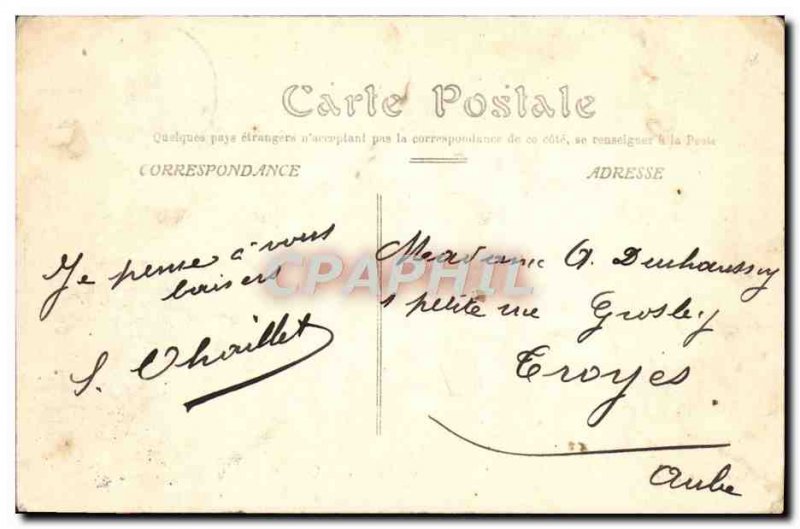 Carte Postale
Quelques pays étrangers n'acceptant pas la correspondance de ce côté, se renseigner à la Poste
CORRESPONDANCE
ADRESSE
Je pense à vous
baisers
S. Chaillet
Madame A. Duchaussoy
1 petite rue Grosley
Troyes
Aube
CPAPHIL